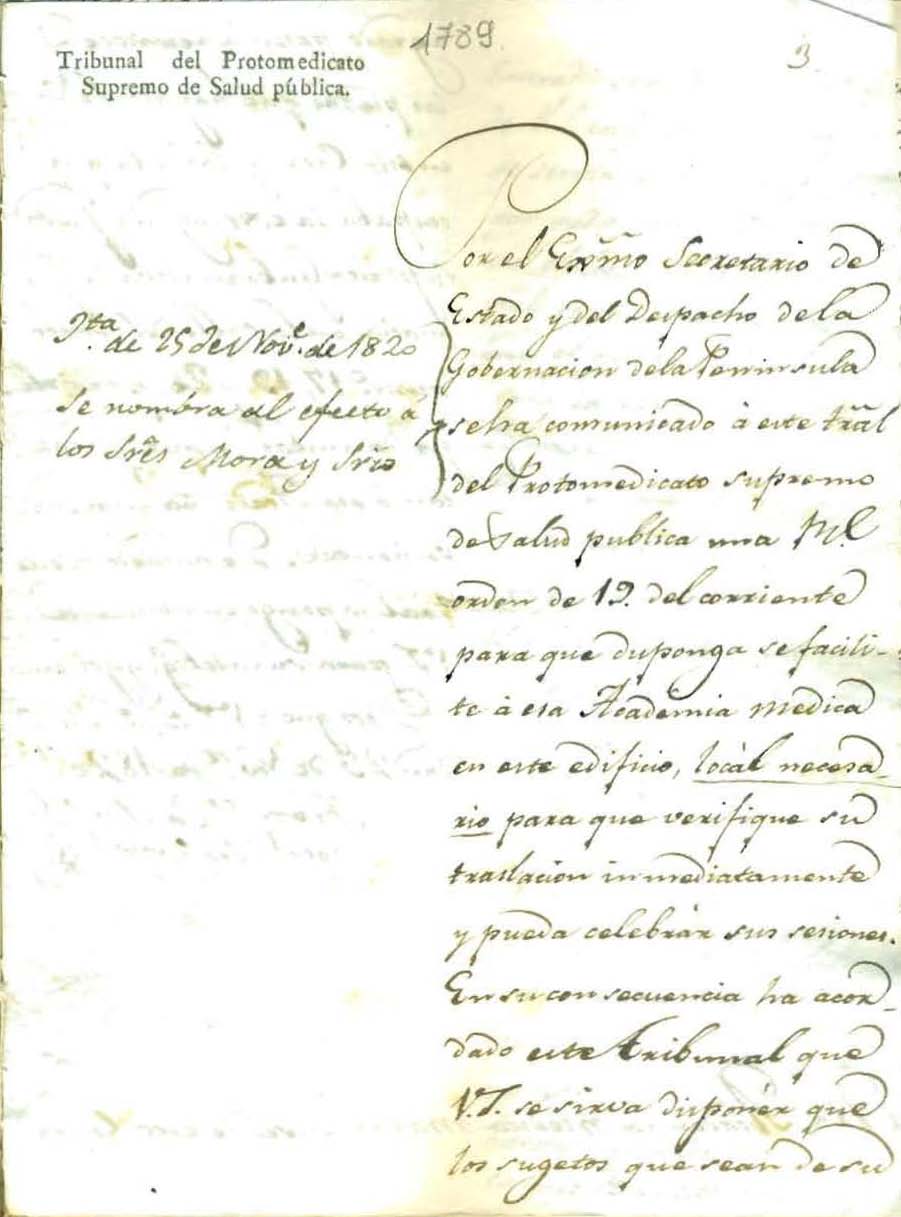 1789
3
Tribunal del Protomedicato
Supremo de Salud pública.
Jta de 25 de Nov.e de 1820
se nombra al efecto á
los Srẽs Mora y Srio
Por el Exm̃o Secretario de
Estado y del Despacho de la
Gobernacion de la Peninsula
se ha comunicado à este trãl
del Protomedicato supremo
de Salud publica una Rl
orden de 19. del corriente
para que disponga se facili-
te à esa Academia medica
en este edificio, locàl necesa-
rio para que verifique su
traslacion inmediatamente
y pueda celebràr sus sesiones.
En su consecuencia ha acor-
dado este Tribunal que
V.S. se sirva disponèr que
los sugetos que sean de su